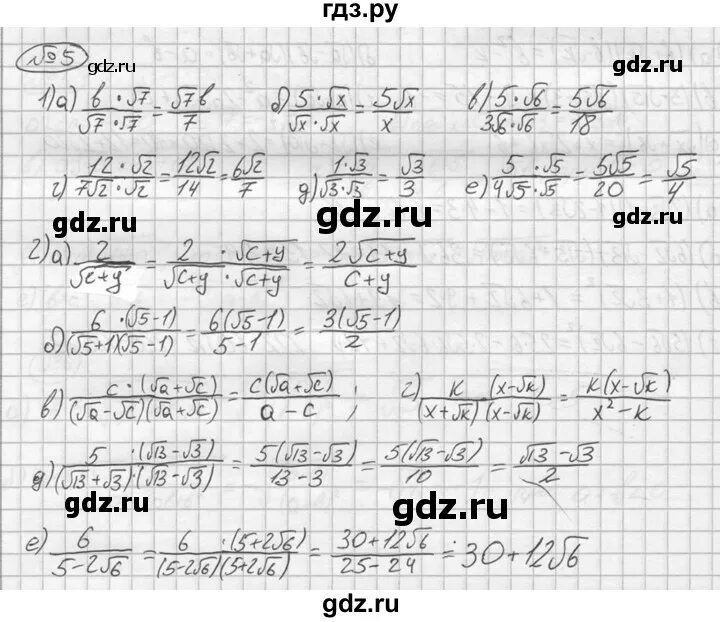 гдз.ру
№5
gdz.ru
gdz.ru
gdz.ru
1) а) (в · √7)/(√7 · √7) = (√7в)/7 б) (5 · √x)/(√x · √x) = (5√x)/x в) (5 · √6)/(3√6 · √6) = (5√6)/18
г) (12 · √2)/(7√2 · √2) = (12√2)/14 = (6√2)/7 д) (1 · √3)/(√3 · √3) = √3/3 е) (5 · √5)/(4√5 · √5) = (5√5)/20 = √5/4
gdz.ru
gdz.ru
gdz.ru
2) а) 2/√(c+y) = (2 · √(c+y))/(√(c+y) · √(c+y)) = (2√(c+y))/(c+y)
б) (6 · (√5-1))/((√5+1)(√5-1)) = (6(√5-1))/(5-1) = (3(√5-1))/2
gdz.ru
gdz.ru
в) (c · (√a+√c))/((√a-√c)(√a+√c)) = (c(√a+√c))/(a-c) ; г) (k (x-√k))/((x+√k)(x-√k)) = (k(x-√k))/(x²-k)
gdz.ru
д) (5 · (√13-√3))/((√13+√3) · (√13-√3)) = (5(√13-√3))/(13-3) = (5(√13-√3))/10 = (√13-√3)/2
gdz.ru
gdz.ru
е) 6/(5-2√6) = (6 · (5+2√6))/((5-2√6)(5+2√6)) = (30+12√6)/(25-24) = 30+12√6
gdz.ru
gdz.ru